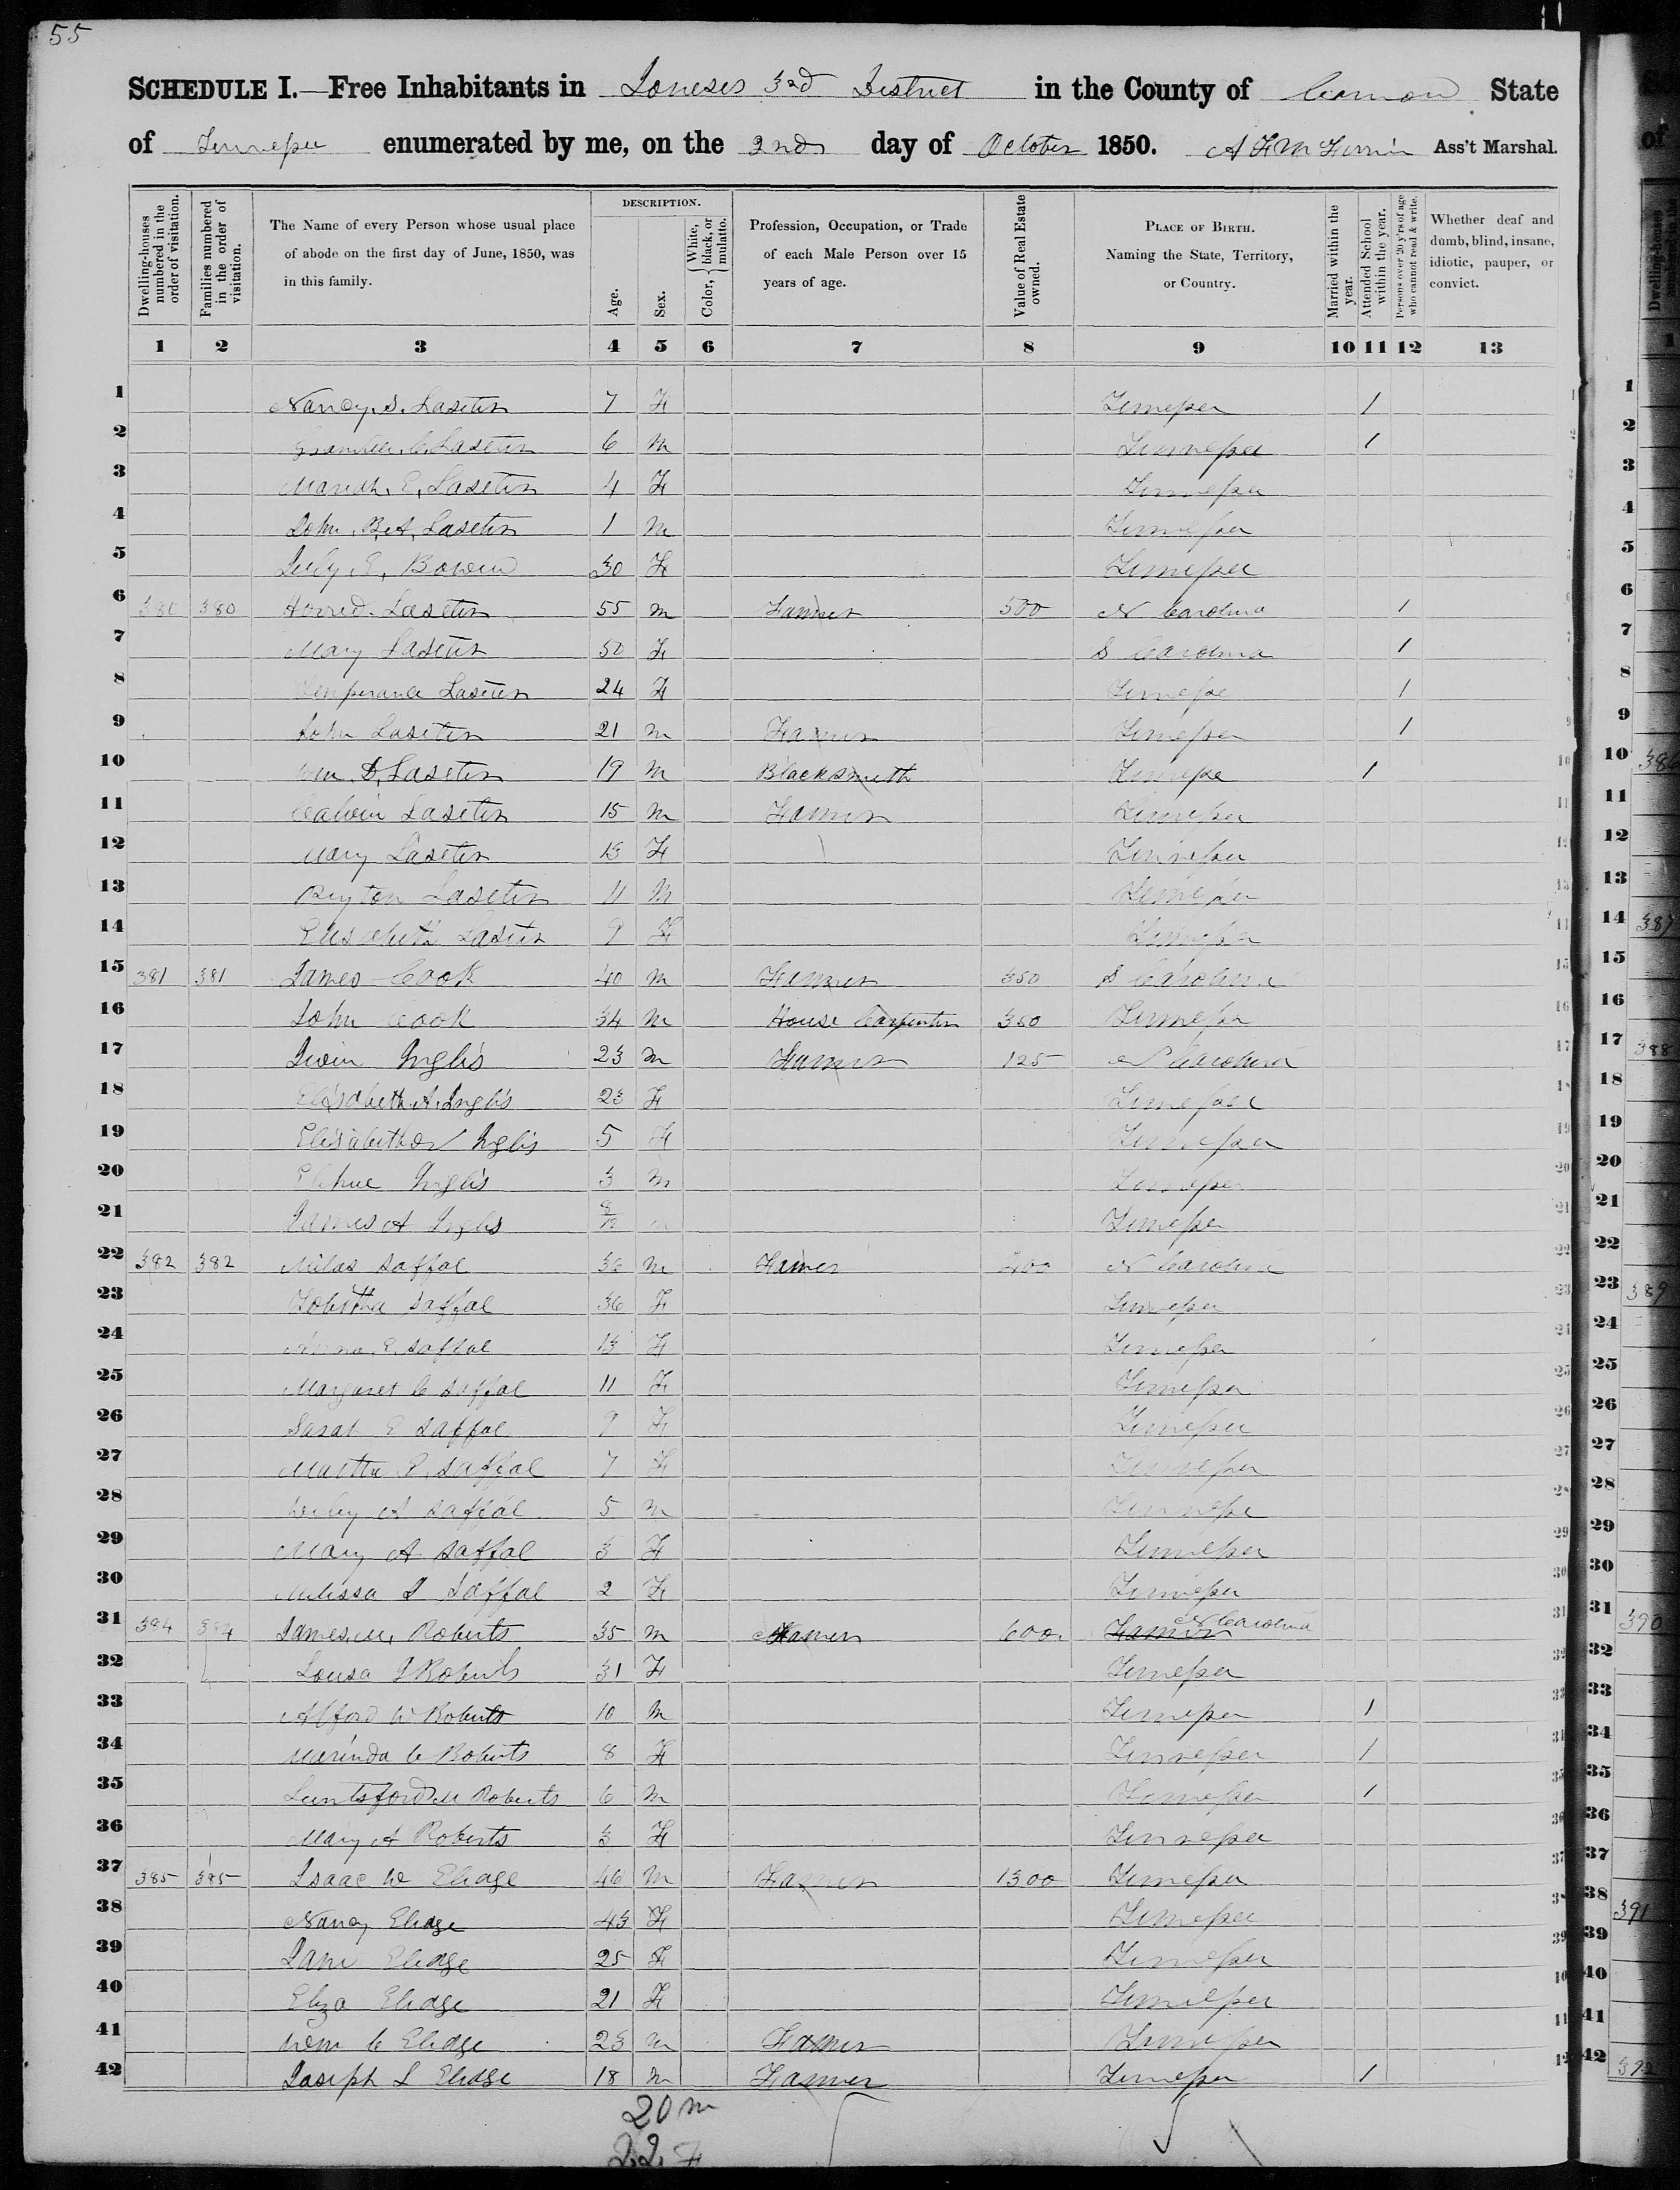 55
SCHEDULE I.—Free Inhabitants in Joneses 3rd District in the County of Cannon State
of Tennessee enumerated by me, on the 2nd day of October 1850. A F McFerrin Ass't Marshal.
Dwelling-houses numbered in the order of visitation.
Families numbered in the order of visitation.
The Name of every Person whose usual place of abode on the first day of June, 1850, was in this family.
DESCRIPTION.
Age.
Sex.
Color, { White, black, or mulatto.
Profession, Occupation, or Trade of each Male Person over 15 years of age.
Value of Real Estate owned.
PLACE OF BIRTH. Naming the State, Territory, or Country.
Married within the year.
Attended School within the year.
Persons over 20 y'rs of age who cannot read & write.
Whether deaf and dumb, blind, insane, idiotic, pauper, or convict.
1 2 3 4 5 6 7 8 9 10 11 12 13
1 Nancy S. Laseter 7 F Tennessee 1
2 Granville C. Laseter 6 M Tennessee 1
3 Mariah E. Laseter 4 F Tennessee
4 John B.A. Laseter 1 M Tennessee
5 July E. Bowen 30 F Tennessee
6 380 380 Laseter 55 M Farmer 500 N Carolina 1
7 Mary Laseter 50 F S Carolina 1
8 Temperance Laseter 24 F Tennessee 1
9 John Laseter 21 M Farmer Tennessee 1
10 Wm D. Laseter 19 M Blacksmith Tennessee 1
11 Calvin Laseter 15 M Farmer Tennessee
12 Mary Laseter 13 F Tennessee
13 Peyton Laseter 11 M Tennessee
14 Elisabeth Laseter 9 F Tennessee
15 381 381 James Cook 40 M Farmer 350 S Carolina
16 John Cook 34 M House Carpenter 350 Tennessee
17 Irvin Inglis 23 M Farmer 125 N Carolina
18 Elisabeth A. Inglis 23 F Tennessee
19 Elisabeth Inglis 5 F Tennessee
20 Elihue Inglis 3 M Tennessee
21 James A Inglis 8/12 M Tennessee
22 382 382 Milas Saffal 36 M Farmer 400 N Carolina
23 Tobitha Saffal 36 F Tennessee
24 Anna E. Saffal 13 F Tennessee
25 Margaret C Saffal 11 F Tennessee
26 Sarah E Saffal 9 F Tennessee
27 Martha P. Saffal 7 F Tennessee
28 Wiley A Saffal 5 M Tennessee
29 Mary A Saffal 3 F Tennessee
30 Melissa J Saffal 2 F Tennessee
31 384 384 James M. Roberts 35 M Farmer 600 N Carolina
32 Lousa J Roberts 31 F Tennessee
33 Alford W Roberts 10 M Tennessee 1
34 Marinda C Roberts 8 F Tennessee 1
35 Luntsford M Roberts 6 M Tennessee 1
36 Mary A Roberts 3 F Tennessee
37 385 385 Isaac W Elidge 46 M Farmer 1300 Tennessee
38 Nancy Elidge 43 F Tennessee
39 Jane Elidge 25 F Tennessee
40 Eliza Elidge 21 F Tennessee
41 Wm C Elidge 23 M Farmer Tennessee
42 Joseph L Elidge 18 M Farmer Tennessee 1
20 m
22 F